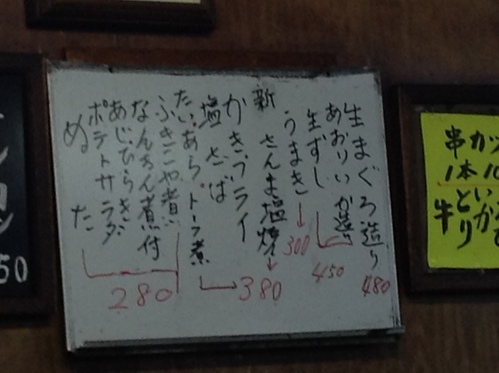 生まぐろ造り 480
あおりいか造り
生ずし 450
うまき 300
新 さんま塩焼
かきフライ 380
塩さば
たいあらトーフ煮
ふきごや煮
なんきん煮付
あじひらき
ポテトサラダ
ぬた
280
串カツ
1本10
牛
50